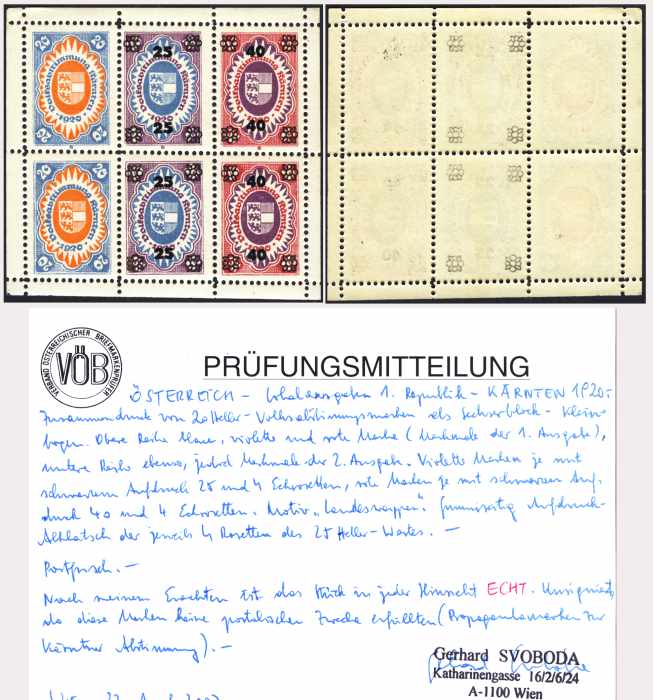 25 40
Volksabstimmung Kärnten
1920
25 40
25 40
1920
25 40
VERBAND ÖSTERREICHISCHER BRIEFMARKENPRÜFER
VÖB
PRÜFUNGSMITTEILUNG
ÖSTERREICH - Lokalausgaben 1. Republik - KÄRNTEN 1920:
Zusammendruck von 20 Heller - Volksabstimmungsmarken als Sechserblock - Klein-
bogen. Obere Reihe blaue, violette und rote Marke (Merkmale der 1. Ausgabe),
untere Reihe ebenso, jedoch Merkmale der 2. Ausgabe. Violette Marken je mit
schwarzem Aufdruck 25 und 4 Eckrosetten, rote Marken je mit schwarzem Auf-
druck 40 und 4 Eckrosetten. Motiv "Landeswappen". Gummiseitig Aufdruck-
Abklatsch der jeweils 4 Rosetten des 25 Heller-Wertes. -
Postfrisch. -
Nach meinem Erachten ist das Stück in jeder Hinsicht ECHT. Unsigniert,
da diese Marken keine postalischen Zwecke erfüllten (Propagandamarken zur
Kärntner Abstimmung). -
Gerhard SVOBODA
Katharinengasse 16/2/6/24
A-1100 Wien